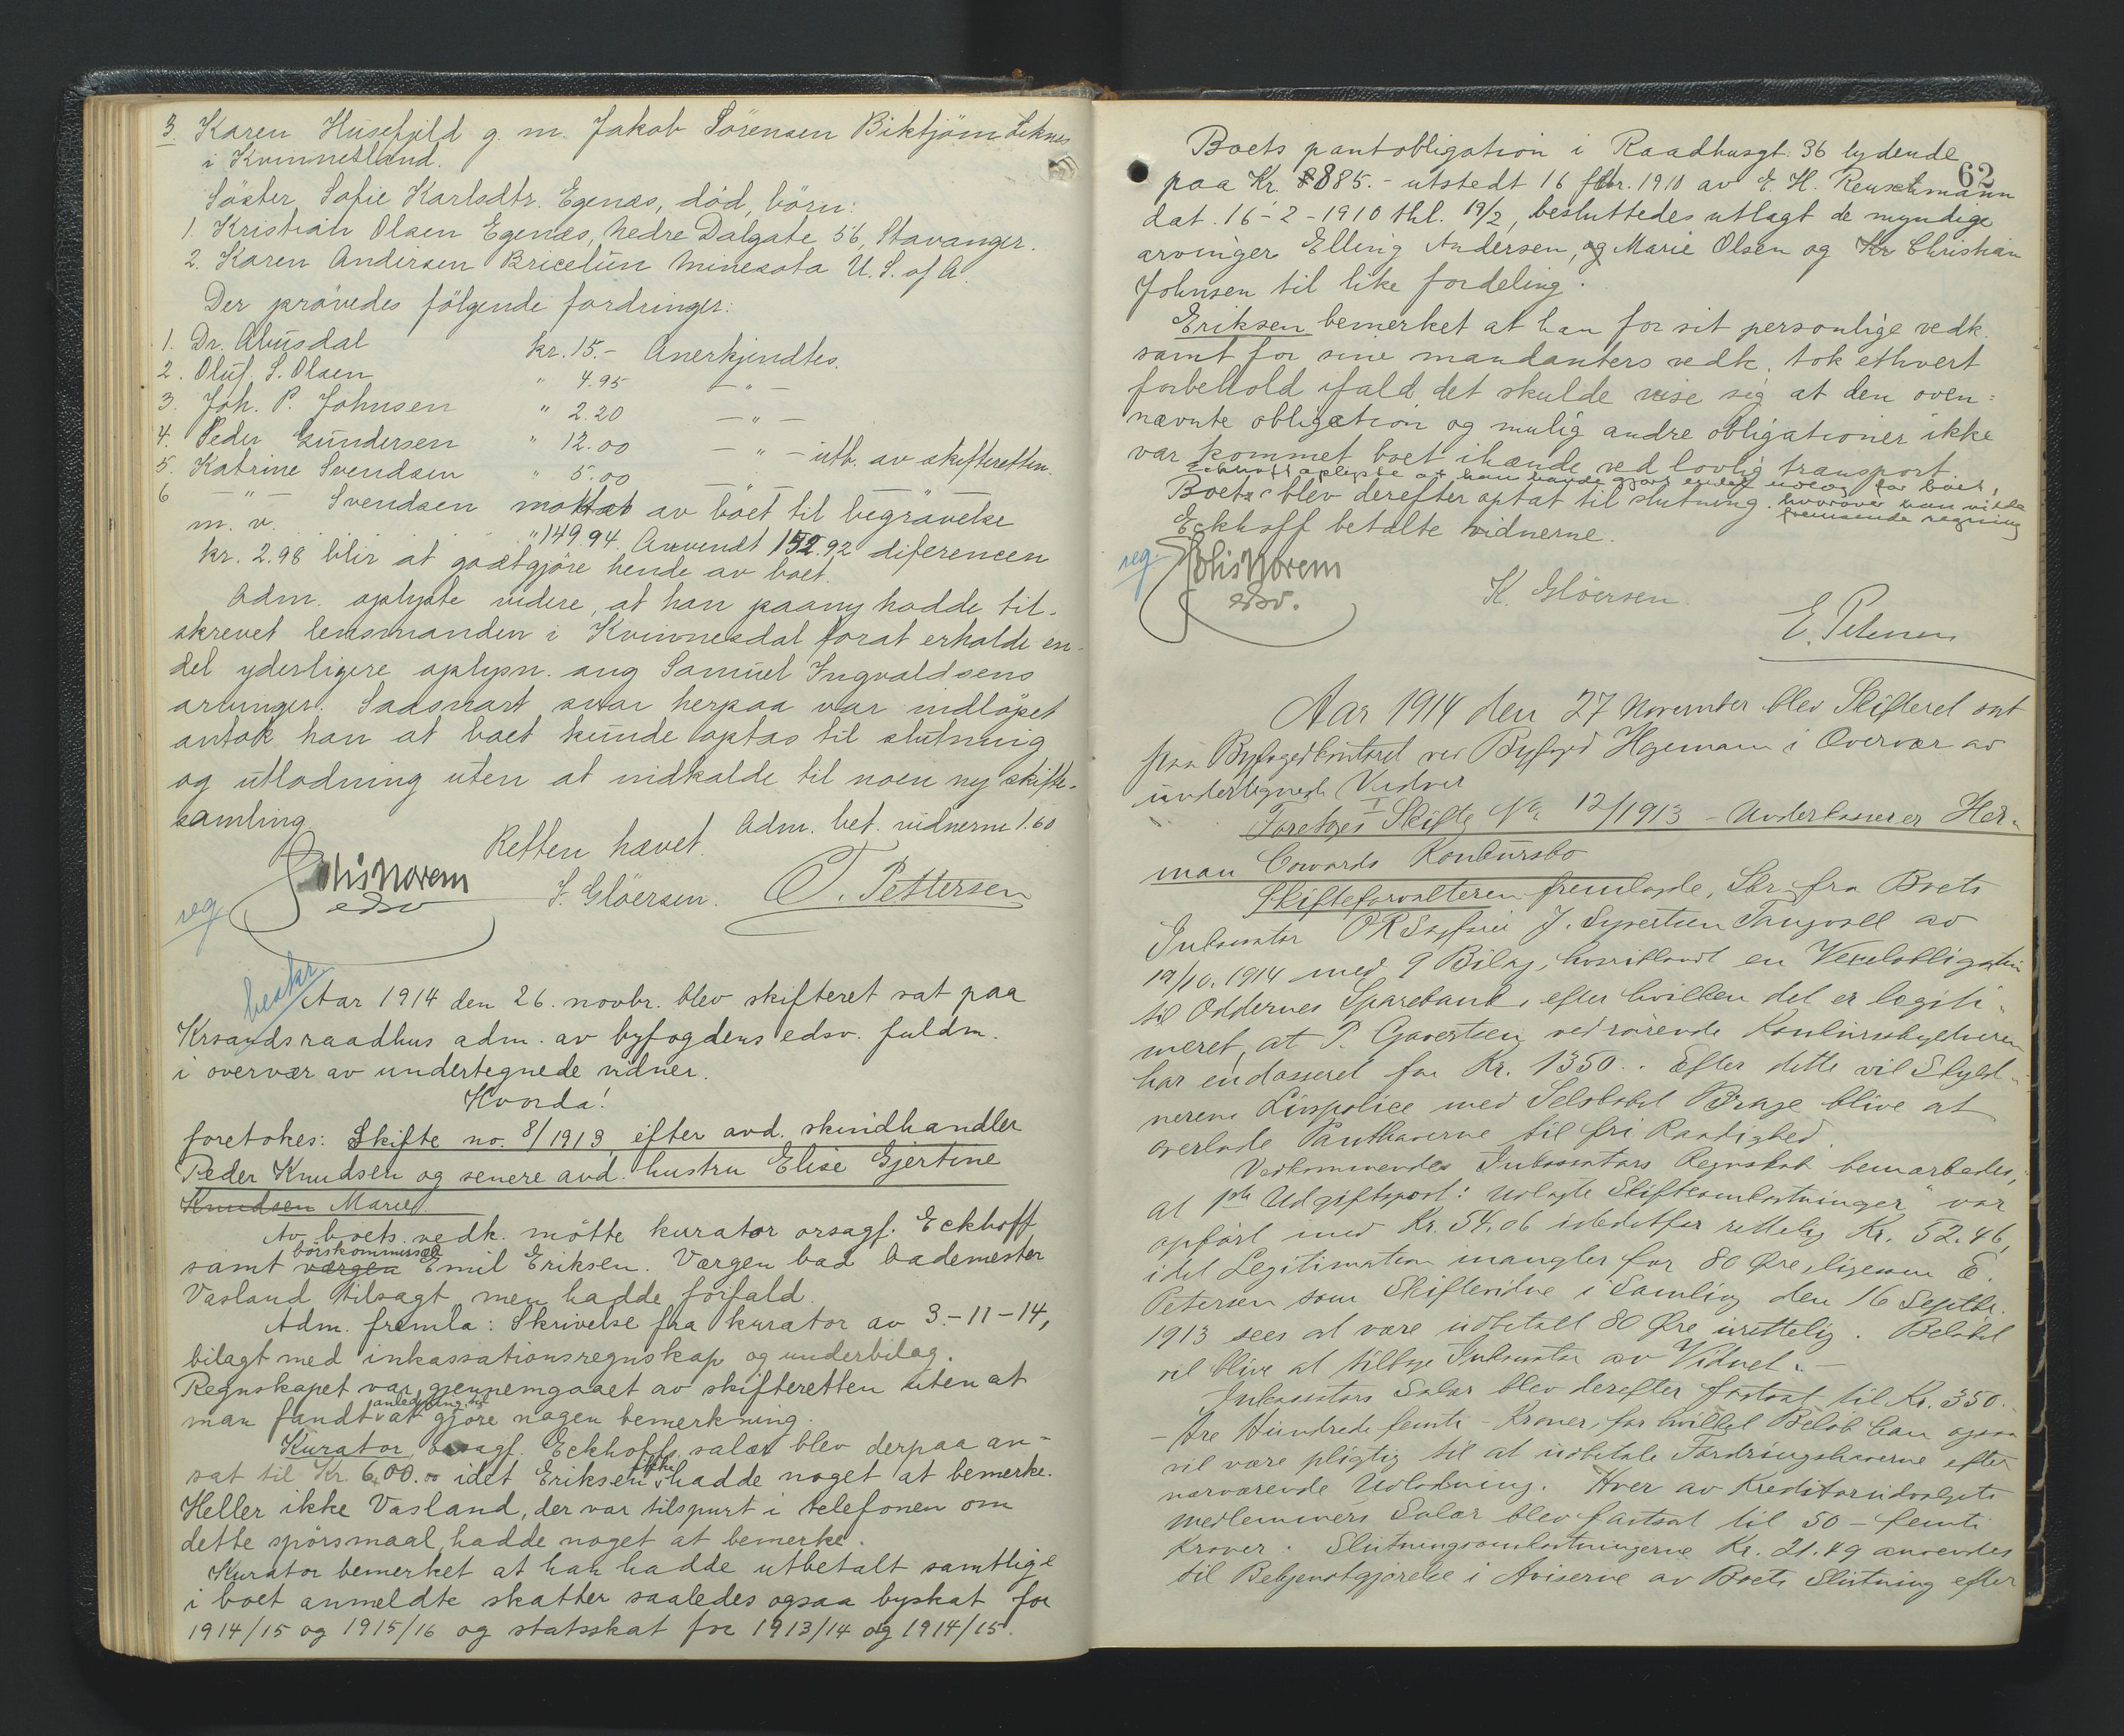 3. Karen Husefjeld g. m. Jakob Sörensen Biktjöm Liknes
i Kvinnesland.
Söster, Sofie Karlsdtr. Egenæs, död, börn:
1. Kristian Olsen Egenæs, Nedre Dalgate 56, Stavanger.
2. Karen Andersen Bricelün Minesota U. S. of A.
Der prövedes fölgende fordringer:
1. Dr. Abusdal kr. 15.- Anerkjendtes.
2. Oluf. S. Olsen " 4.95 — " —
3. Joh. P. Johnsen " 2.20 — " —
4. Peder Gundersen " 12.00 — " — utb. av skifteretten.
5. Katrine Svendsen " 5.00 — " —
6 — " — Svendsen mottat av boet til begravelse
m. v. " 149.94. Anvendt 152.92 diferencen
kr. 2.98 blir at godtgjöre hende av boet.
Adm. oplyste videre, at han paany hadde til-
skrevet lensmanden i Kvinnesdal forat erholde en-
del yderligere oplysn. ang Samuel Ingvaldsens
arvinger. Saasnart svar herpaa var indlöpet
antok han at boet kunde optas til slutning
og utlodning uten at indkalde til noen ny skifte-
samling
Retten hævet. Adm. bet. vidnerne 1.60
reg Johs Norem
edsv
S. Glöersen. T. Pettersen
beskr
Aar 1914 den 26. novbr. blev skifteret sat paa
Krsands raadhus adm. av byfogdens edsv. fuldm.
i overvær av undertegnede vidner.
Hvorda!
foretokes: Skifte no. 8/1913 efter avd. skindhandler
Peder Knudsen og senere avd. hustru Elise Gjertine
Knudsen Marie
Av boets vedk. mötte kurator orsagf. Eckhoff
börskommissær
samt værgen Emil Eriksen. Værgen bad bademester
Vasland tilsagt, men hadde forfald.
Adm. fremla: Skrivelse fra kurator av 3-11-14,
bilagt med inkassationsregnskap og underbilag.
Regnskapet var gjennemgaaet av skifteretten uten at
anledning til
man fandt at gjöre nogen bemerkning.
Kurator, orsagf. Eckhoffs salær blev derpaa an-
sat til Kr. 600.00 idet Eriksen ikke hadde noget at bemerke.
Heller ikke Vasland, der var tilspurt i telefonen om
dette spörsmaal, hadde noget at bemerke.
Kurator bemerket at han hadde utbetalt samtlige
i boet anmeldte skatter saaledes ogsaa byskat for
1914/15 og 1915/16 og statsskat for 1913/14 og 1914/15.
62
Boets pantobligation i Raadhusgt. 36 lydende
paa Kr. 885.- utstedt 16 febr. 1910 av E. H. Reuschmann
dat. 16-2-1910 thl. 19/2, besluttedes utlagt de myndige
arvinger Elling Andersen, og Marie Olsen og Kr Christian
Johnsen til like fordeling.
Eriksen bemerket at han for sit personlige vedk.
samt for sine mandanters vedk. tok ethvert
forbehold ifald det skulde vise sig at den oven=
nævnte obligation og mulig andre obligationer ikke
var kommet boet ihænde ved lovlig transport.
Eckhoff oplyste at han havde gjort endel utlæg for boet,
Boet blev derefter optat til slutning. hvorover han vilde
fremsende regning
Eckhoff betalte vidnerne.
reg Johs Norem
edsv.
K. Glöersen
E. Petersen
Aar 1914 den 27 November blev Skifteret sat
paa Byfogedkontoret ved Byfoged Hegemann i Overvær av
undertegnede Vidner
Foretoges I Skifte No 12/1913 - Underkasserer Her-
man Cowards Konkursbo
Skifteforvalteren fremlagde, Skr. fra Boets
Inkassator ORSagfører J. Syvertsen Tangvall av
19/10. 1914 med 9 Bilag, hvoriblandt en Vexelobligation
til Oddernes Sparebank, efter hvilken det er legiti-
meret, at P. Gavertsen vedrørende Konkursskyldneren
har endosseret for Kr. 1350.. Efter dette vil Skyld-
nerens Livspolice med Selskabet Brage blive at
overlade Panthaverne til fri Raadighed.
Vedkommendes Inkassators Regnskab bemærkedes,
at pto Udgiftspost: "Udlagte Skifteomkostninger" var
opført med Kr. 54.06 istedetfor rettelig Kr. 52.46,
idet Legitimation mangler for 80 Øre, ligesom E.
Petersen som Skiftevidne i Samling den 16 Septbr.
1913 sees at være udbetalt 80 Øre urettelig. Beløbet
vil blive at tilbage Inkassator av Vidnet.-
Inkassators Salær blev derefter fastsat til Kr. 350.-
- tre Hundrede femti - Kroner, for hvilket Beløb han ogsaa
vil være pligtig til at udbetale Fordringshaverne efter
nærværende Udlodning. Hver av Kreditorudvalgets
Medlemmers Salær blev fastsat til 50 - femti
Kroner. Slutningsomkostningerne Kr. 21.49 anvendes
til Bekjendtgjørelse i Aviserne av Boets Slutning efter